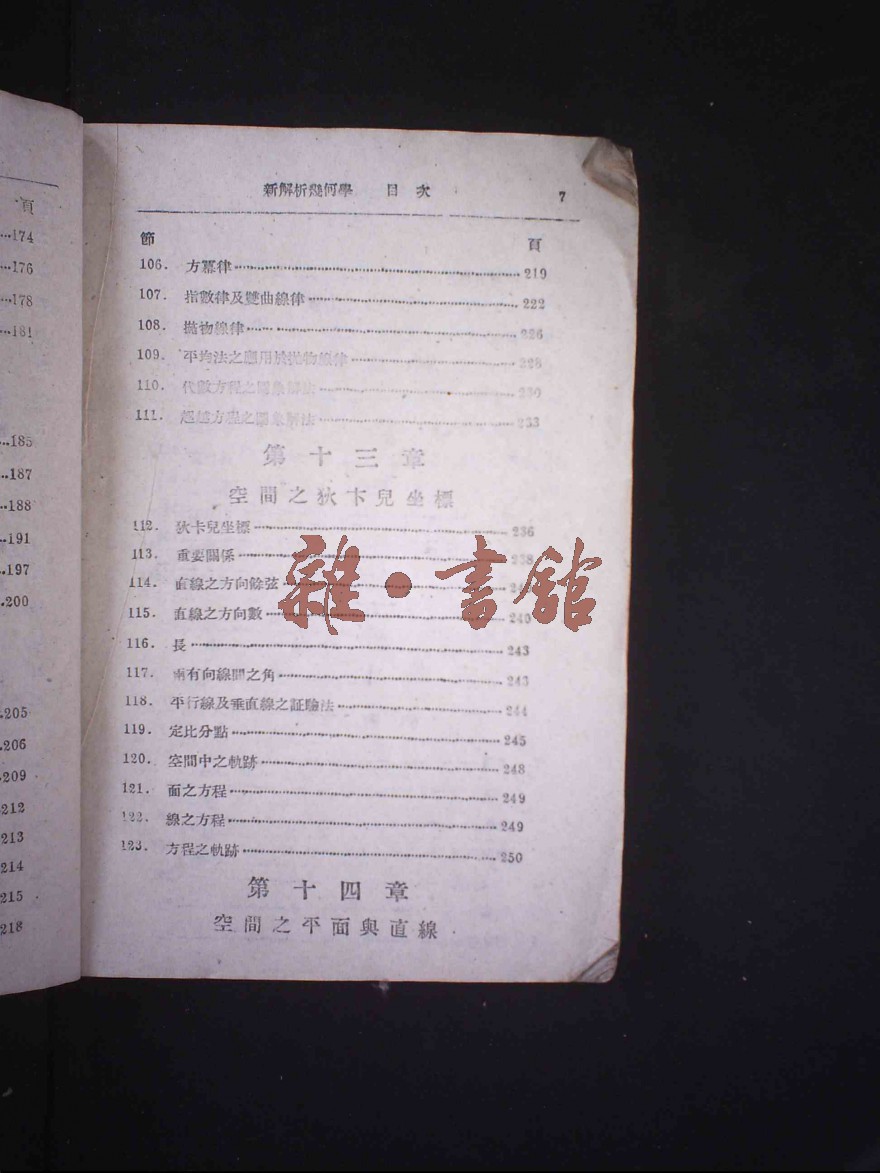 頁
...174
...176
...178
...181
...185
...187
...188
...191
...197
...200
.205
.206
.209
212
213
214
215
218
新解析幾何學 目次 7
節 頁
106. 方冪律 219
107. 指數律及雙曲線律 222
108. 拋物線律 226
109. 平均法之應用於拋物線律 228
110. 代數方程之圖象解法 230
111. 超越方程之圖象解法 233
第十三章
空間之狄卡兒坐標
112. 狄卡兒坐標 236
113. 重要關係 238
114. 直線之方向餘弦
115. 直線之方向數 240
116. 長 243
117. 兩有向線間之角 243
118. 平行線及垂直線之証驗法 244
119. 定比分點 245
120. 空間中之軌跡 248
121. 面之方程 249
122. 線之方程 249
123. 方程之軌跡 250
第十四章
空間之平面與直線
雜·書館